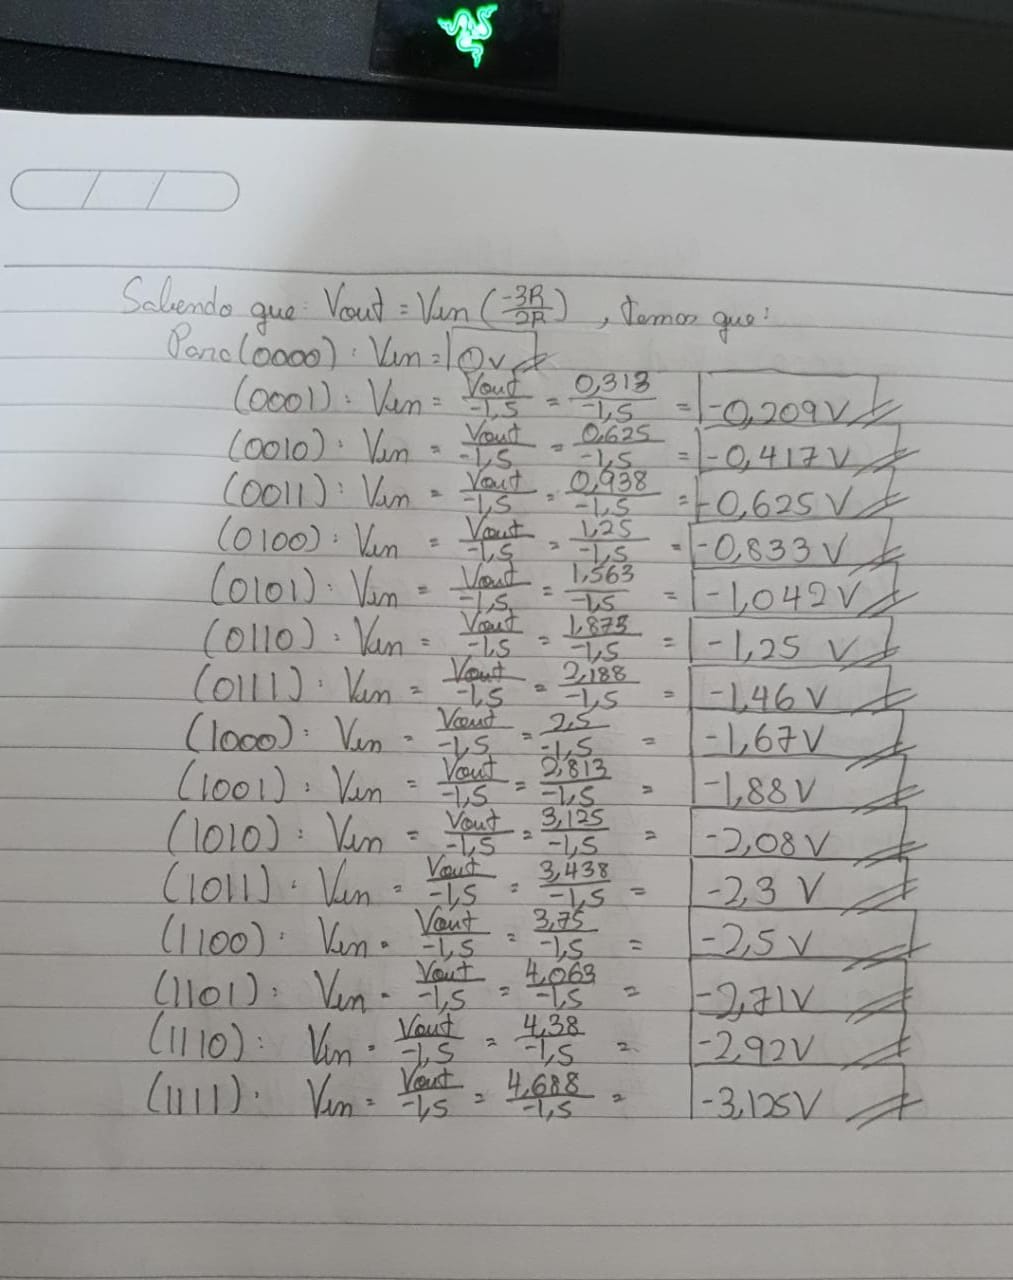 Sabendo que: Vout = Vin (-3R/2R), temos que:
Para (0000): Vin = 0v
(0001): Vin = Vout/-1,5 = 0,313/-1,5 = -0,209V
(0010): Vin = Vout/-1,5 = 0,625/-1,5 = -0,417V
(0011): Vin = Vout/-1,5 = 0,938/-1,5 = -0,625 V
(0100): Vin = Vout/-1,5 = 1,25/-1,5 = -0,833 V
(0101): Vin = Vout/-1,5 = 1,563/-1,5 = -1,042 V
(0110): Vin = Vout/-1,5 = 1,875/-1,5 = -1,25 V
(0111): Vin = Vout/-1,5 = 2,188/-1,5 = -1,46 V
(1000): Vin = Vout/-1,5 = 2,5/-1,5 = -1,67V
(1001): Vin = Vout/-1,5 = 2,813/-1,5 = -1,88V
(1010): Vin = Vout/-1,5 = 3,125/-1,5 = -2,08V
(1011): Vin = Vout/-1,5 = 3,438/-1,5 = -2,3 V
(1100): Vin = Vout/-1,5 = 3,75/-1,5 = -2,5 V
(1101): Vin = Vout/-1,5 = 4,063/-1,5 = -2,71V
(1110): Vin = Vout/-1,5 = 4,38/-1,5 = -2,92V
(1111): Vin = Vout/-1,5 = 4,688/-1,5 = -3,125V